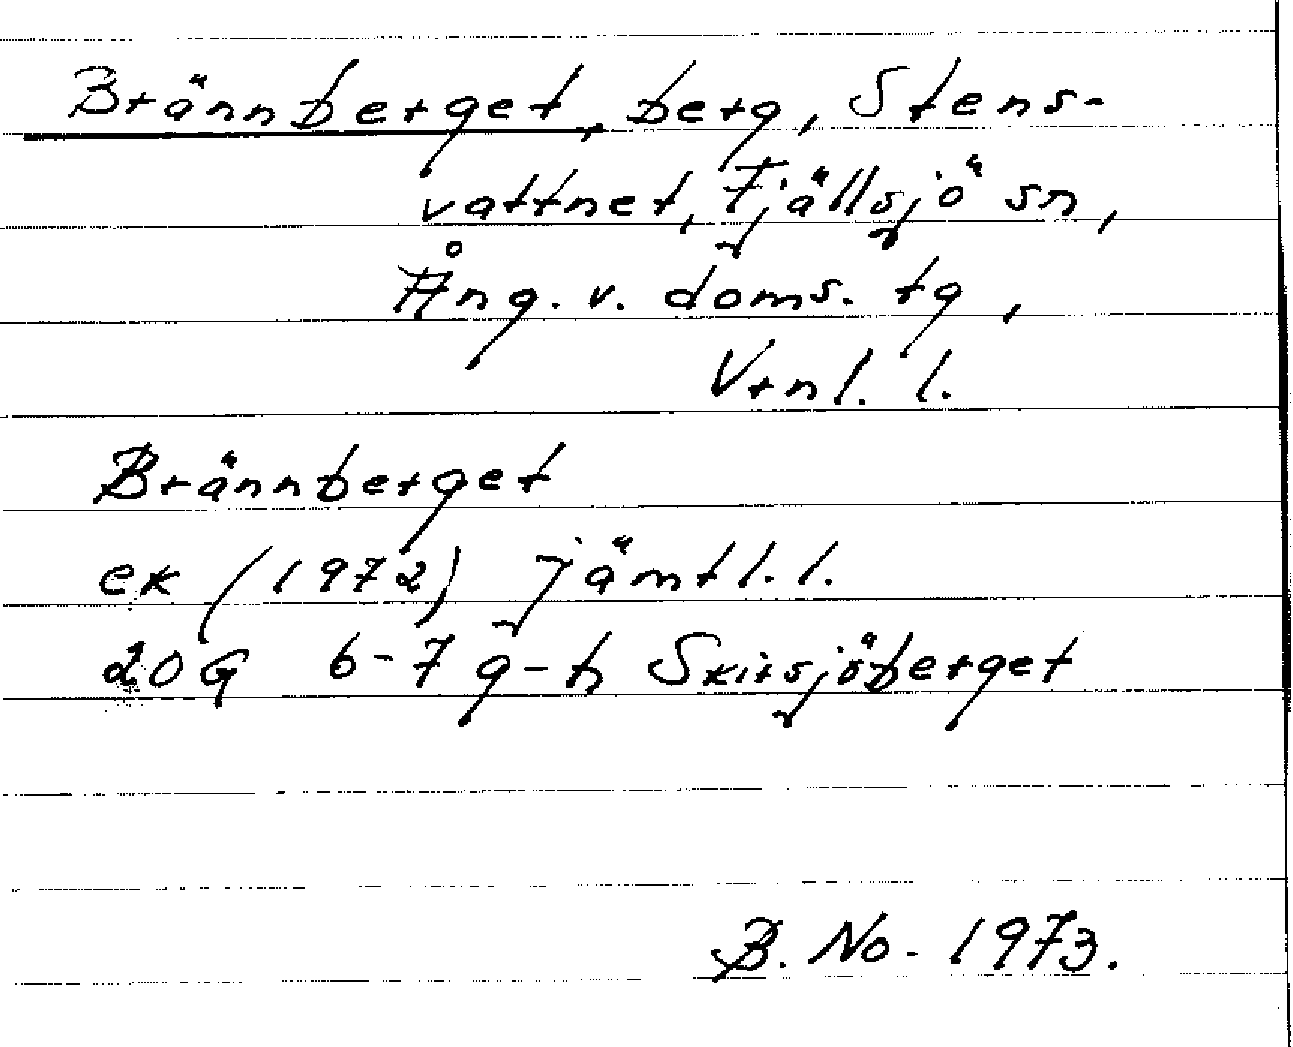 Brännberget, berg, Stens-
vattnet, Fjällsjö sn,
Ång. v. doms. tg,
Vrnl. l.
Brännberget
ek (1972) Jämtl. l.
20G 6-7 g-h Skirsjöberget
B. No. 1973.